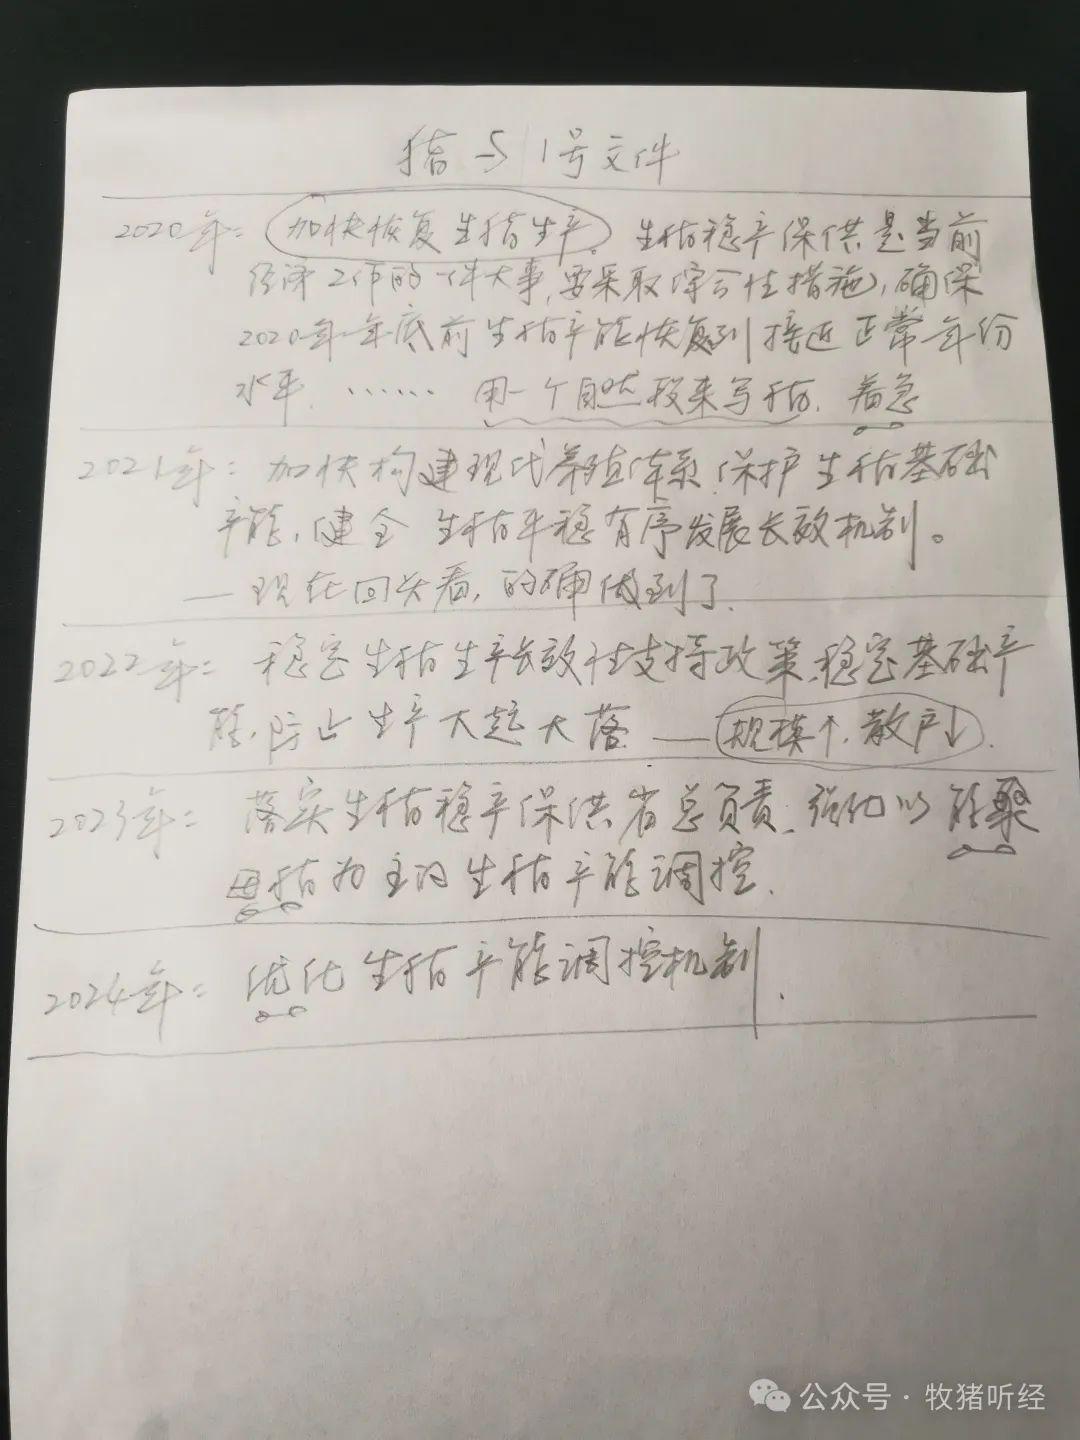 猪与1号文件
2020年：加快恢复生猪生产。生猪稳产保供是当前
经济工作的一件大事，要采取综合性措施，确保
2020年年底前生猪产能恢复到接近正常年份
水平。……用一个自然段来写猪。着急
2021年：加快构建现代养殖体系，保护生猪基础
产能，健全生猪平稳有序发展长效机制。
—现在回头看，的确做到了。
2022年：稳定生猪生产长效性支持政策，稳定基础产
能，防止生产大起大落——规模个，散户↓。
2023年：落实生猪稳产保供省总负责，强化以能繁
母猪为主的生猪产能调控。
2024年：优化生猪产能调控机制。
公众号·牧猪听经